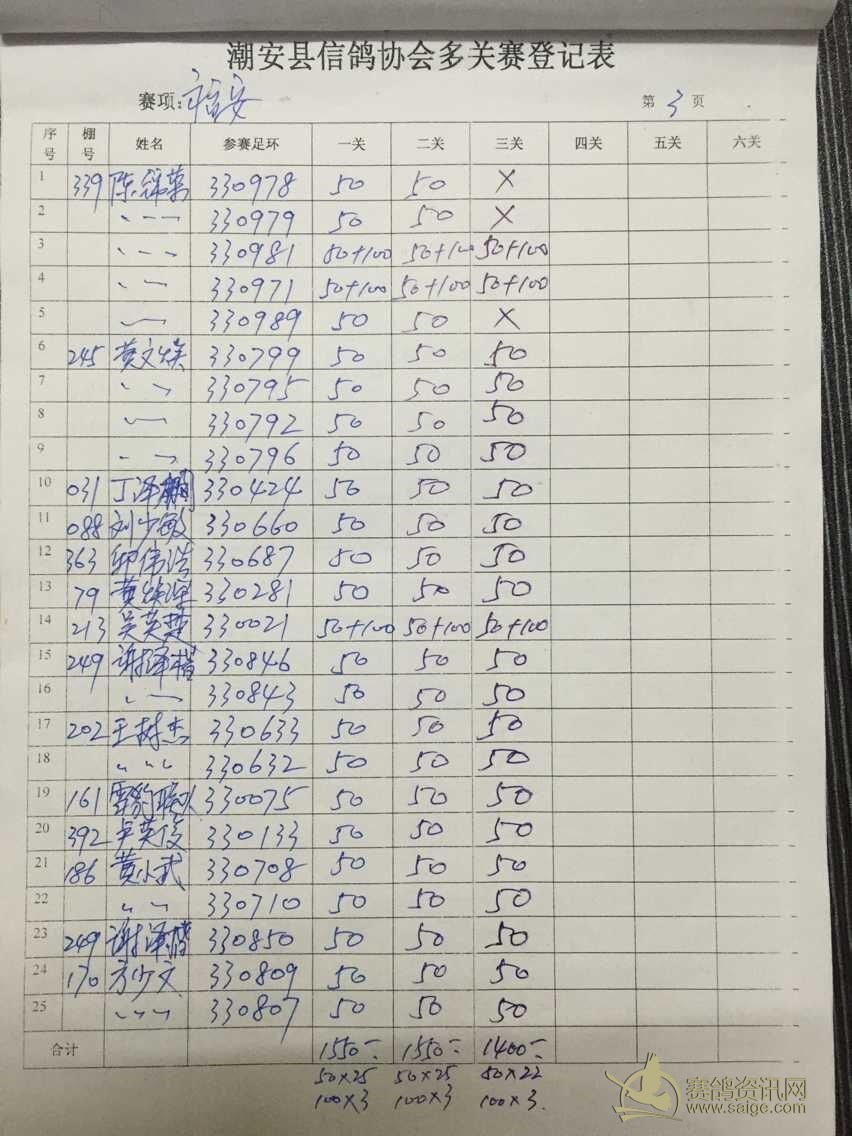 潮安县信鸽协会多关赛登记表
赛项:福安 第 3 页
序号 棚号 姓名 参赛足环 一关 二关 三关 四关 五关 六关
1 339 陈锦荣 330978 50 50 ×
2 330979 50 50 ×
3 330981 50+100 50+100 50+100
4 330971 50+100 50+100 50+100
5 330989 50 50 ×
6 245 黄文焕 330799 50 50 50
7 330795 50 50 50
8 330792 50 50 50
9 330796 50 50 50
10 031 丁泽鹏 330424 50 50 50
11 088 刘少敏 330660 50 50 50
12 363 邱伟浩 330687 50 50 50
13 79 黄 330281 50 50 50
14 213 吴英楚 330021 50+100 50+100 50+100
15 249 谢泽楷 330846 50 50 50
16 330843 50 50 50
17 202 王树杰 330633 50 50 50
18 〃 330632 50 50 50
19 161 雪豹联队 330075 50 50 50
20 392 英俊 330133 50 50 50
21 186 黄小武 330708 50 50 50
22 〃 330710 50 50 50
23 249 谢泽楷 330850 50 50 50
24 170 方少文 330809 50 50 50
25 330807 50 50 50
合计 1550- 1550- 1400-
50×25 50×25 50×22
100×3 100×3 100×3.
赛鸽资讯网
www.saige.com